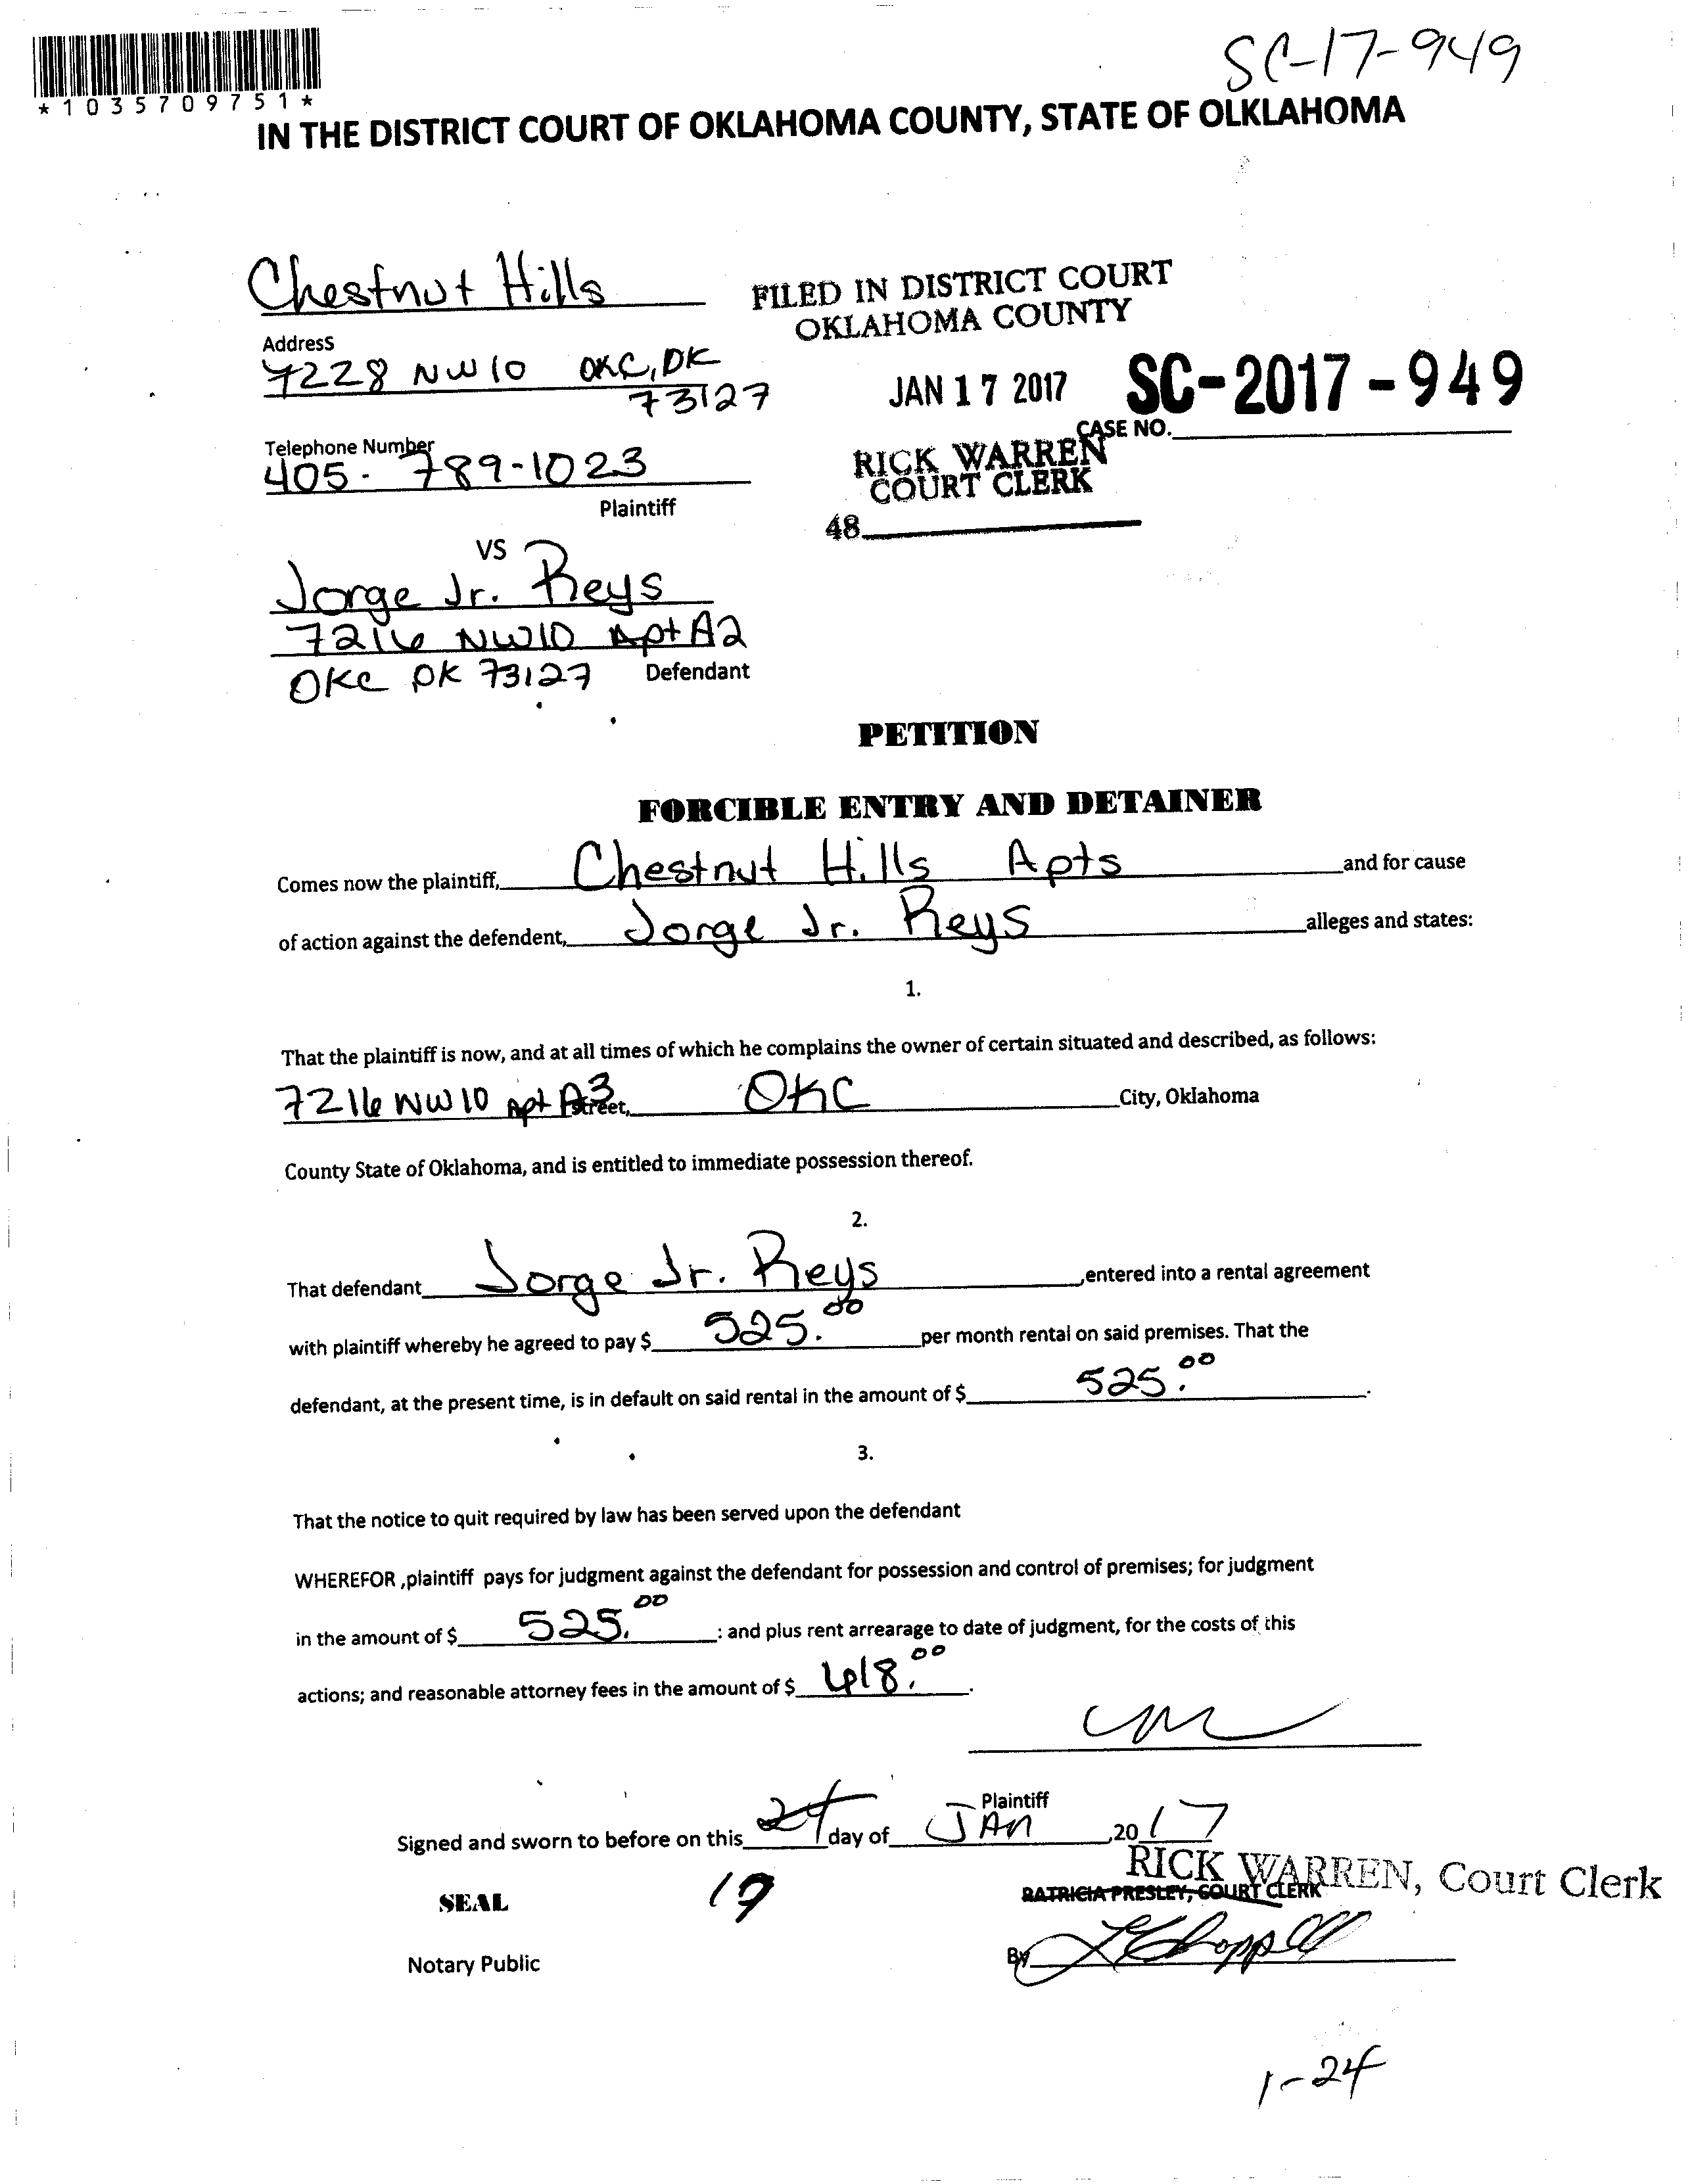 SC-17-949
*1035709751*
IN THE DISTRICT COURT OF OKLAHOMA COUNTY, STATE OF OLKLAHOMA
Chestnut Hills
FILED IN DISTRICT COURT
OKLAHOMA COUNTY
Address
7228 NW 10 OKC, OK
73127
JAN 17 2017 SC-2017-949
CASE NO.
Telephone Number
405-789-1023
RICK WARREN
COURT CLERK
Plaintiff
48
VS
Jorge Jr. Reys
7216 NW10 Apt A2
OKC OK 73127 Defendant
PETITION
FORCIBLE ENTRY AND DETAINER
Comes now the plaintiff, Chestnut Hills Apts and for cause
of action against the defendent, Jorge Jr. Reys alleges and states:
1.
That the plaintiff is now, and at all times of which he complains the owner of certain situated and described, as follows:
7216 NW 10 Apt A3 Street, OKC City, Oklahoma
County State of Oklahoma, and is entitled to immediate possession thereof.
2.
That defendant Jorge Jr. Reys ,entered into a rental agreement
with plaintiff whereby he agreed to pay $ 525.00 per month rental on said premises. That the
defendant, at the present time, is in default on said rental in the amount of $ 525.00.
3.
That the notice to quit required by law has been served upon the defendant
WHEREFOR ,plaintiff pays for judgment against the defendant for possession and control of premises; for judgment
in the amount of $ 525.00 : and plus rent arrearage to date of judgment, for the costs of this
actions; and reasonable attorney fees in the amount of $ 618.00.
Plaintiff
Signed and sworn to before on this 24 day of JAN ,2017
17
RICK WARREN, Court Clerk
PATRICIA PRESLEY, COURT CLERK
SEAL
By
Notary Public
1-24